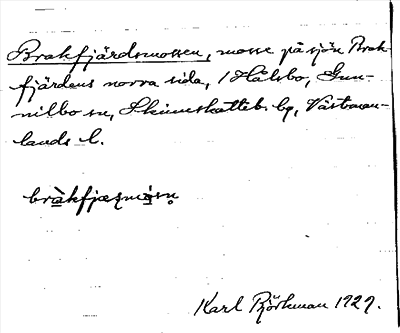 Brakfjärdsmossen, mosse på sjön Brak-
fjärdens norra sida, i Hålsbo, Gun-
nilbo sn, Skinnskatteb. bg, Västman-
lands l.
Karl Björkman 1929.